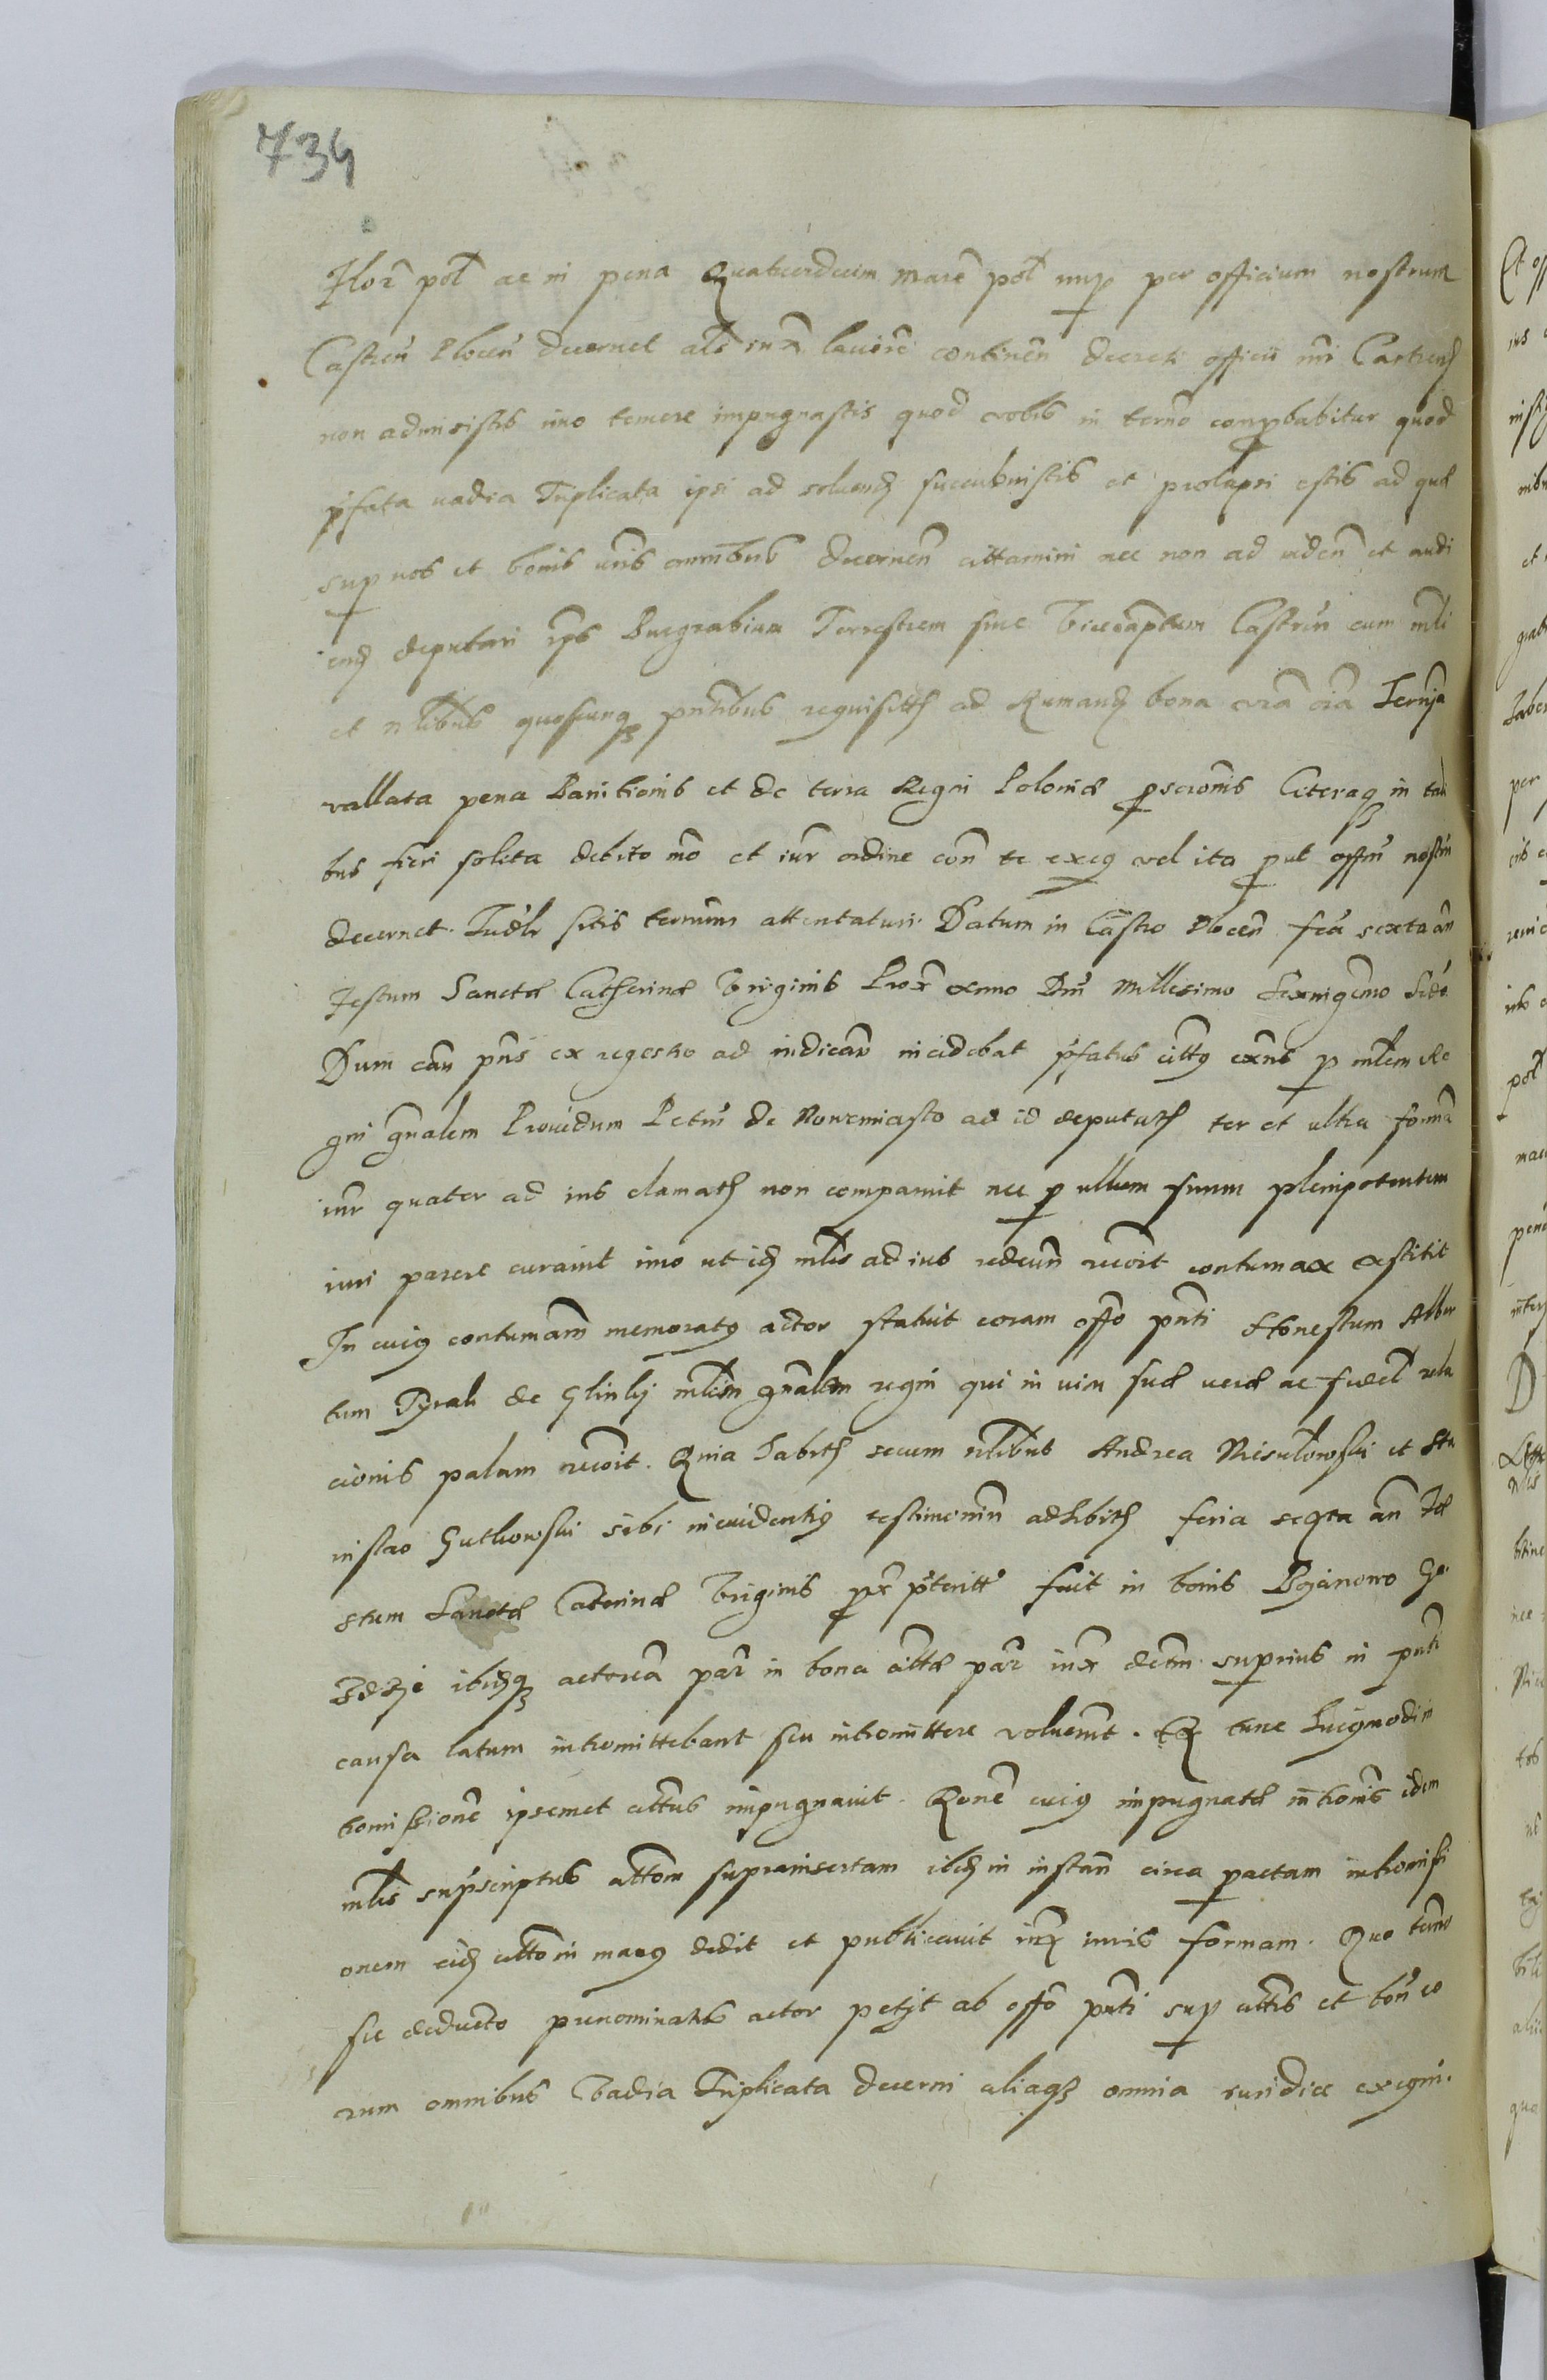 734
Flor̄ pol̄ ac in pena Quatuordecim Marc̄ pol̄ nup per officium nostrum
Castren̄ Plocen̄ decernet als iuxa leviore continen̄ decreti officii nr̄i Castren
non admisistis imo temere impugnastis quod vobis in termō conpbabitur quod
pfata vadia Triplicata ipsi ad soluend succubuistis et prolapsi estis ad que
sup vos et bonis vr̄is omnibus decernen̄ cittamini nec non ad viden̄ et audi
end deputari ips Burgrabium Terrestrem siue Vicecap̄tum Castren̄ cum mli
et nlibus quoscunq pntibus requisitis ad Rumand bona vr̄a oīa
vallata pena Banitionis et de terra Regni Poloniæ pscr̄onis Ceteraq in tali
bus fieri solita debito mō et iur ordine con̄ te exeq vel ita put offm̄ nostrū
decernet. Iudlr sitis terminum attentaturi. Datum in Castro Plocen̄ fer̄ sexta an̄
Festum Sanctæ Catherinæ Virginis Prox̄ anno Dni Millesimo Sexingēmo Scdo
Dum cau pn̄s ex regestro ad iudicān incidebat pfatus citty p mlem Re
gni gn̄alem Prouidum Petrū de Novemiasto ad id deputat ter et ultra formā
iur quater ad ius clamat non comparuit nec p ullum suum plenipotentem
iuri parere curauit imo ut id mlis ad ius redeun̄ recoīt contumax exstitit
In cuig contumam̄ memoraty actor statuit coram offō pn̄ti Honestum Alber
tum Pyrah de Glinky mlem gn̄alem regni qui in vim suæ veræ ac fidel rela
cionis palam recoīt. Quia habit secum nlibus Andrea Misulowski et Sta
nislao Gutkowski sibi in euidentig testimonium adhibit feria sexta an̄ Fe
stum Sanctæ Caterinæ Virginis px pteritt fuit in bonis Bojanowo Go
zdzi ibidq actorea par̄ in bona citta par̄ iuxa dectm̄ superius in pnti
causa latum intromittebant seu intromittere voluerunt. Et tunc huigmodi in
tromissionē ipsemet cittus impugnauit. Ronē cuig impugnatæ intr̄onis idem
mlis supscriptus cittom suprainsertam ibid in instan̄ circa pactam intromissi
onem eid citto in many dedit et publicauit iuxa iuris formam. Quo termō
sic deducto prenominatus actor petijt ab offō pn̄ti sup cittis et bon̄ eo
rum omnibus Vadia Triplicata decerni aliaq omnia iuridice exequi.